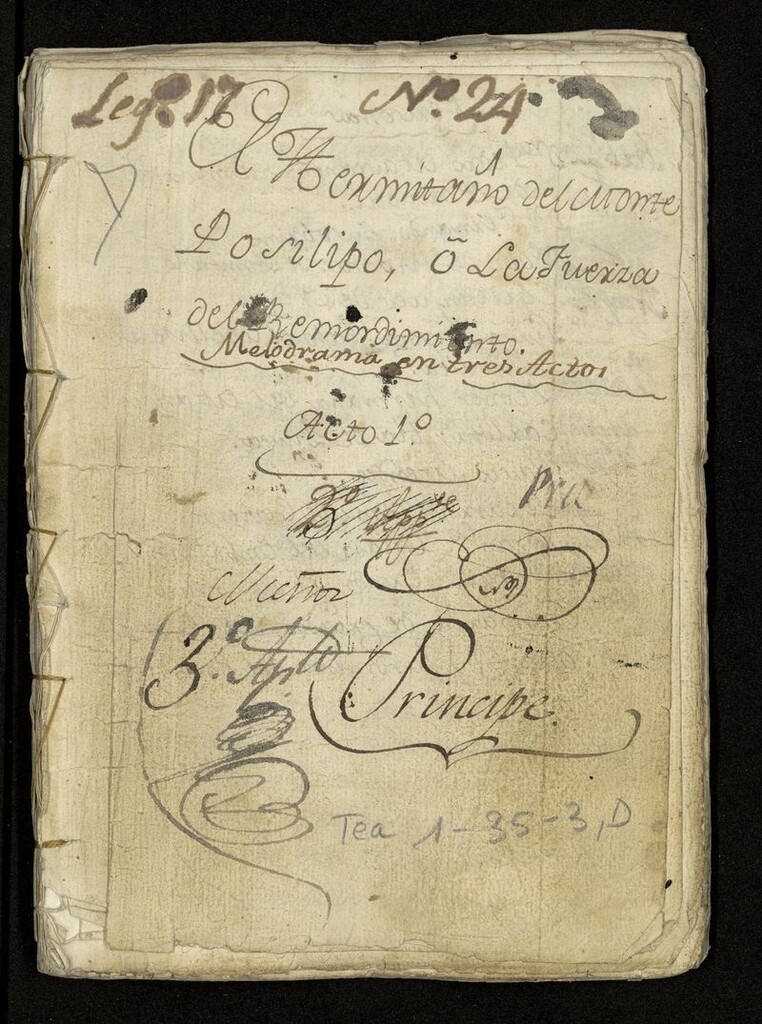 Leg.º 17 Nº. 24
El Hermitaño del Monte
Posilipo, ō La Fuerza
del Remordimiento.
Melodrama en tres Actos
Acto 1.º
3.º
Principe.
Tea 1-35-3, D